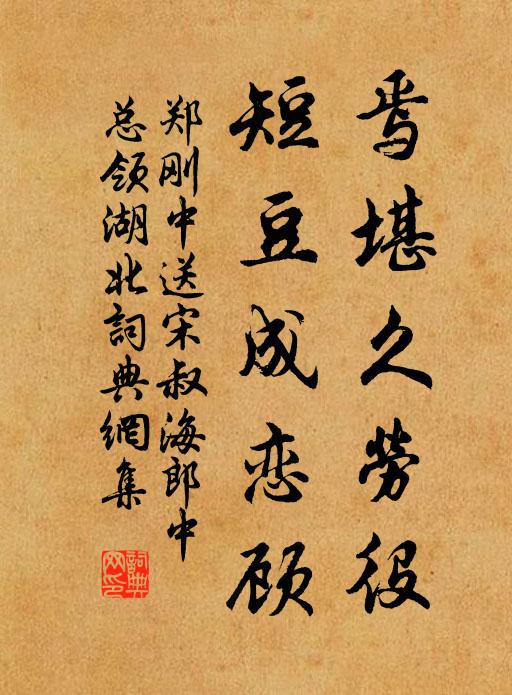 焉堪久劳役
短豆成恋顾
郑刚中送宋叔海郎中
总领湖北詞典網集
詞典网印